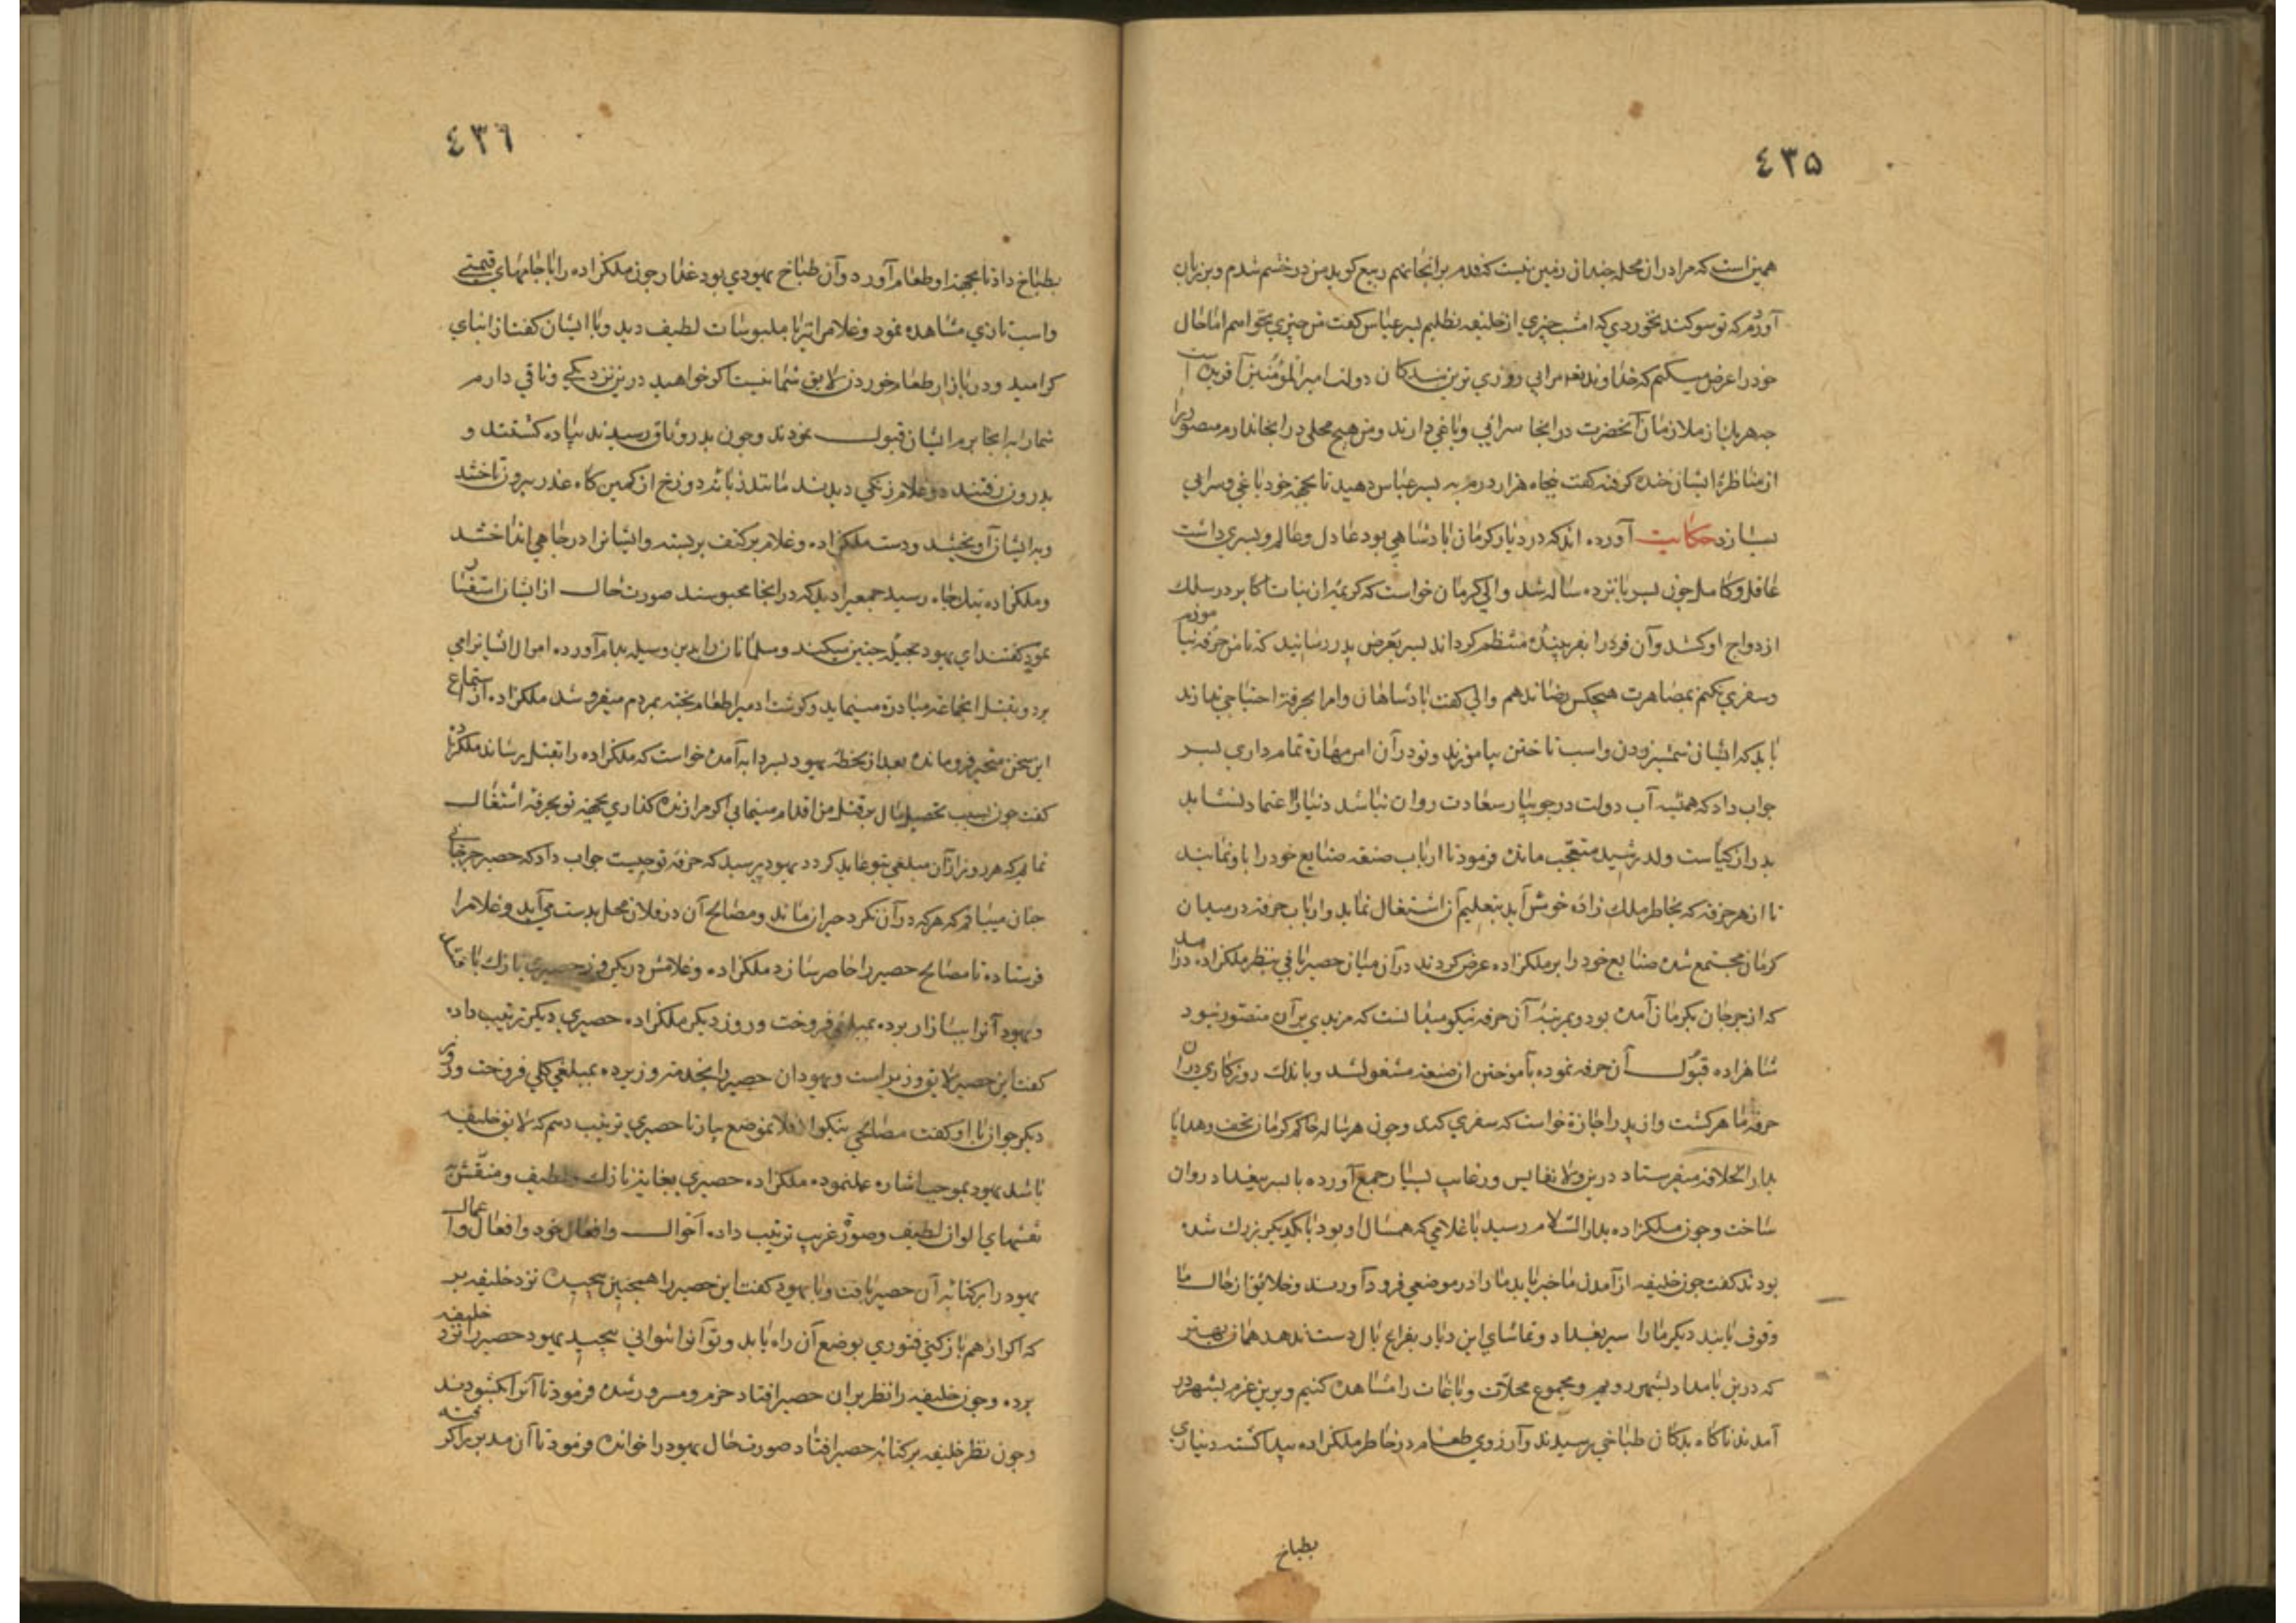 ٤٣۵
همین است که مرا در ان محله چندان زمین نیست که قدم بر انجا نهم ربیع کوید من در خشم شدم و بر زبان
آوردم که تو سوکند نخوردي که امشب چیزي از خلیفه نطلبم پسر عباس کفت من چیزي نمیخواهم اما حال
خود را عرض میکنم که خداوند تعه مرا بی روزي ترین بندکان دولت امیر المؤمنین آفریده است
چه هر یك از ملازمان آنحضرت در اینجا سرائي و باغي دارند و من هیچ محلی در اینجا ندارم منصور را
از مناظرۀ ایشان خنده کرفته کفت پنجاه هزار درم به پسر عباس دهید تا بجهة خود باغي و سرایي
بسازد حکایت آورده اند که در دیار کرمان پادشاهي بود عادل و عالم و پسري داشت
عاقل و کامل چون پسر پانزده ساله شد والي کرمان خواست که کریمۀ از بنات اکابر در سلك
ازدواج او کشد و آن فرد را بقرینۀ منتظم کرداند پسر بعرض پدر رسانید که تا من حرفه نیاموزم
و سفري نکنم بمصاهرت هیچکس رضا ندهم والي کفت پادشاهان و امرا بحرفة احتیاجي ندارند
باید که ایشان شمشیر زدن و اسب تاختن بیاموزند و تو در آن امر مهارة تمام داري پسر
جواب داد که همیشه آب دولت در جویبار سعادت روان نباشد دنیا را اعتماد نشاید
پدر از کیاست ولد رشید متعجب مانده فرمود تا ارباب صنعه صنایع خود را باو نمایند
تا از هر حرفه که بخاطر ملك زاده خوش آید بتعلیم آن اشتغال نماید و ارباب حرفه در میدان
کرمان مجتمع شده صنایع خود را بر ملکزاده عرض کردند در آن میان حصیر بافي بنظر ملکزاده در آمد
که از جرجان بکرمان آمده بود و بمرتبۀ آن حرفه نیکو میدانست که مزیدي بر آن متصور نبود
شاهزاده قبول آن حرفه نموده بآموختن ان صنعه مشغول شد و باندك روزکاري در ان
حرفه ماهر کشت و از پدر اجازة خواست که سفري کند و چون هر ساله حاکم کرمان تحف و هدایا
بدار الخلافه میفرستاد درین ولا نفایس و رغایب بسیار جمع آورده با پسر ببغداد روان
ساخت و چون ملکزاده بدار السلام رسید با غلامي که همسال او بود با یکدیکر بزرك شده
بودند کفت چون خلیفه از آمدن ما خبر یابد ما را در موضعي فرود آورند و خلایق از حال ما
وقوف یابند دیکر ما را سیر بغداد و تماشاي این دیار بفراغ بال دست ندهد همان بهتر
که درین بامداد بشهر رویم و مجموع محلات و باغات را مشاهده کنیم و برین عزم بشهر در
آمدند ناکاه بدکان طباخي رسیدند و آرزوي طعام در خاطر ملکزاده پیدا کشته دیناري
بطباخ
٤٣٦
بطباخ داد تا بجهة او طعام آورد و آن طباخ یهودي بود غدار چون ملکزاده را با جامهاي قیمتي
و اسب تازي مشاهده نمود و غلام را نیز با ملبوسات لطیف دید و با ایشان کفت از ابناي
کرامید و در بازار طعام خوردن لایق شما نیست اکر خواهید درین نزدیکي وثاقي دارم
شما را به انجا برم ایشان قبول نمودند و چون بدر وثاق رسیدند پیاده کشتند و
بدرون رفتند دو غلام زنکي دیدند مانند زبانۀ دوزخ از کمین کاه غدر بیرون تاختند
و به ایشان آویختند و دست ملکزاده و غلام بر کتف بر بستند و ایشانرا در چاهي انداختند
و ملکزاده بتك چاه رسید جمعي را دید که در انجا محبوسند صورت حال از ایشان استفسار
نمود کفتند اي یهود بحیله چنین میکند و مسلمانان را بدین وسیله بدام آورده اموال ایشانرا مي
برد و بقتل انجماعه مبادرة مینماید و کوشت ادمیرا طعام پخته بمردم میفروشد ملکزاده از استماع
این سخن متحیر فرو مانده بعد از لحظۀ یهود بسر چاه آمده خواست که ملکزاده را بقتل رساند ملکزاده
کفت چون بسبب تحصیل مال بر قتل من اقدام مینمایي اکر مرا زنده کذاري بجهة تو بحرفۀ اشتغال
نمایم که هر روز از آن مبلغي بتو عاید کردد یهود پرسید که حرفه تو چیست جواب داد که حصیر جرجاني
چنان میبافم که هر که در آن نکرد حیران ماند و مصالح آن در فلان محل بدست مي آید و غلام را
فرستاده تا مصالح حصیر را حاضر سازد ملکزاده و غلامش در یکروز حصیري نازك بافتند
و یهود آنرا ببازار برده بمبلغي فروخت و روز دیکر ملکزاده حصیري دیکر ترتیب داده
کفت این حصیر لایق وزیر است و یهود ان حصیر را بخدمت وزیر برده بمبلغي کلي فروخت و روز
دیکر جوان با او کفت مصالحي نیکو از فلانموضع بیار تا حصیري ترتیب دهم که لایق خلیفه
باشد یهود بموجب اشاره عمل نموده ملکزاده حصیري بغایة نازك و لطیف و منقش
نقشهاي الوان لطیف و صورة غریب ترتیب داده احوال و افعال خود و افعال و اعمال
یهود را بر کنارۀ آن حصیر بافت و با یهود کفت این حصیر را همچنین پیچیده نزد خلیفه بر
که اکر از هم باز کني فتوري بوضع آن راه یابد و تو آنرا نتواني پیچید یهود حصیر را نزد خلیفه
برده و چون خلیفه را نظر بران حصیر افتاد خرم و مسرور شده فرمود تا آنرا بکشودند
و چون نظر خلیفه بر کنارۀ حصیر افتاد صورت حال یهود را خوانده فرمود تا آن مدبر را کرفته